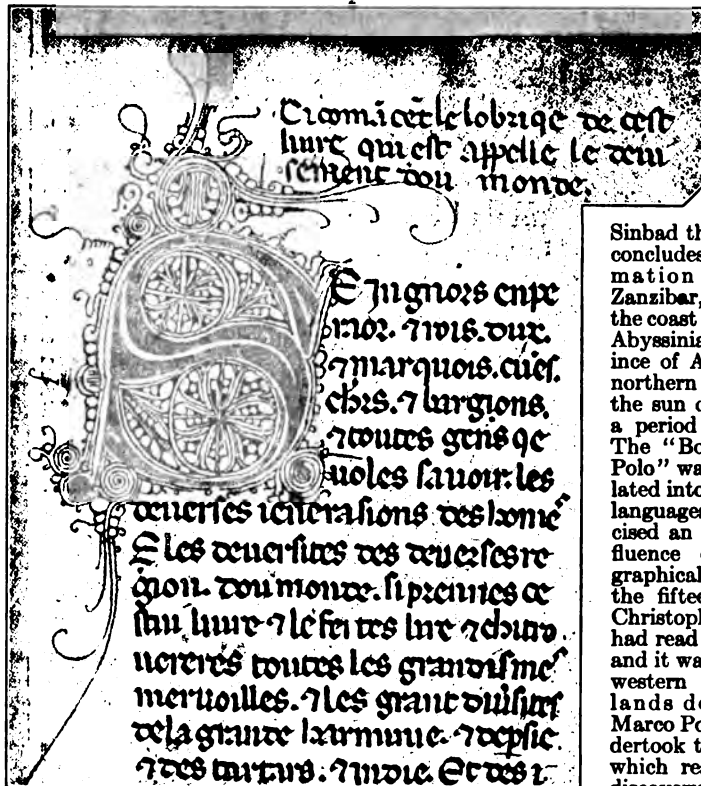 Ci comācet le lobrique de cest
liure qui est appelle le deui
sement dou monde.
Seingnors enpe
raor. ⁊ rois. dux.
⁊ marquois. cues.
chrs. ⁊ bargions.
⁊ toutes gens qe
uoles sauoir. les
deuerses ienerasions des home
E les deuersites des deuerses re
gion. dou monde. si prennes ce
stui liure ⁊ le feites lire ⁊ chi tro
ueres toutes les grandisme
meruoilles. ⁊ les grant diuersites
de la grande harminie. ⁊ de psie
⁊ des tartars. ⁊ indie. Et des
Sinbad th
concludes
mation
Zanzibar,
the coast
Abyssinia
ince of A
northern
the sun
a period
The "Bo
Polo" wa
lated into
languages
cised an
fluence
graphical
the fiftee
Christoph
had read
and it wa
western
lands de
Marco Po
dertook t
which re